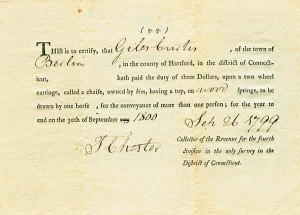 THIS is to certify, that Giles Curtis , of the town of
Berlin , in the county of Hartford, in the district of Connecti-
cut, hath paid the duty of three Dollars, upon a two wheel
carriage, called a chaise, owned by him, having a top, on wood springs, to be
drawn by one horse , for the conveyance of more than one person; for the year to
end on the 30th of September 1800
Sep. 26 1799
T Chester
Collector of the Revenue for the fourth
division in the only survey in the
District of Connecticut.